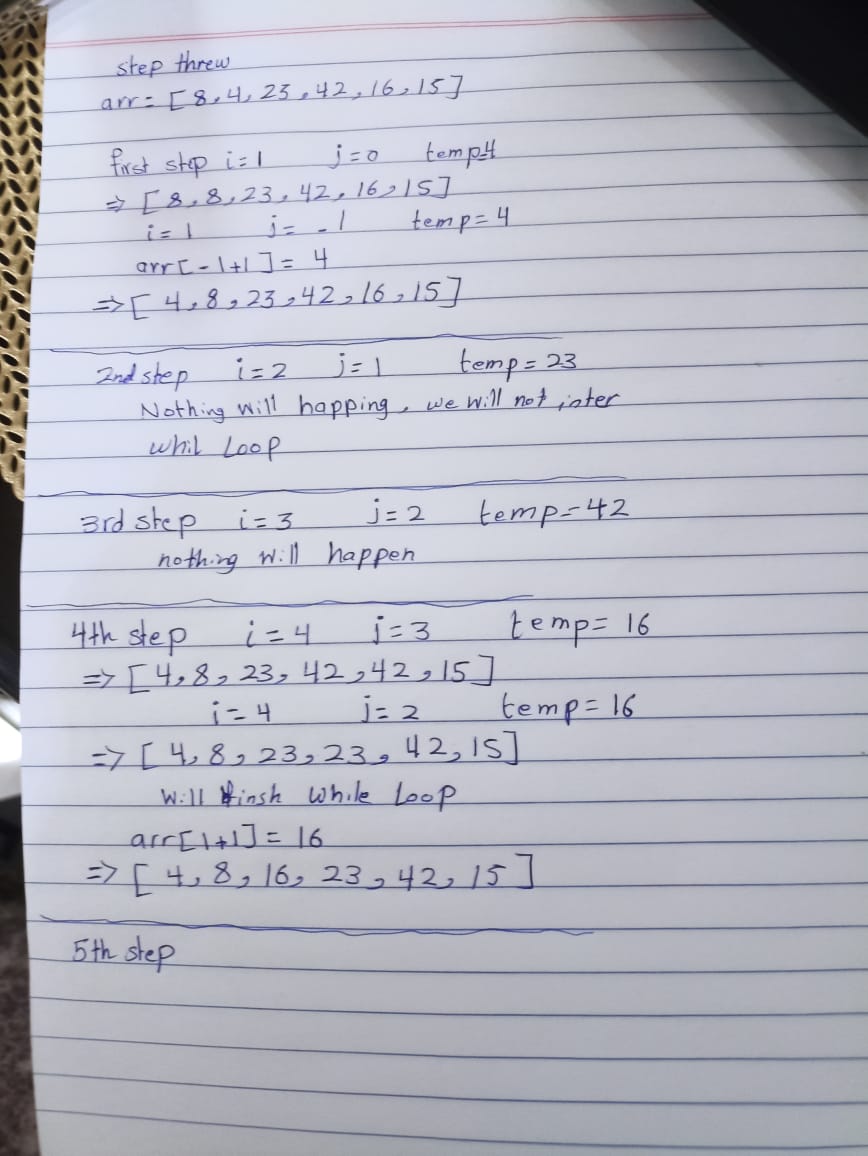 step threw
arr = [8,4,23,42,16,15]
first step i=1 j=0 temp=4
=> [8,8,23,42,16,15]
i=1 j=-1 temp=4
arr[-1+1]=4
=> [4,8,23,42,16,15]
2nd step i=2 j=1 temp=23
Nothing will happing, we will not inter
whil Loop
3rd step i=3 j=2 temp=42
nothing will happen
4th step i=4 j=3 temp=16
=> [4,8,23,42,42,15]
i=4 j=2 temp=16
=> [4,8,23,23,42,15]
Will finsh while Loop
arr[1+1]=16
=> [4,8,16,23,42,15]
5th step